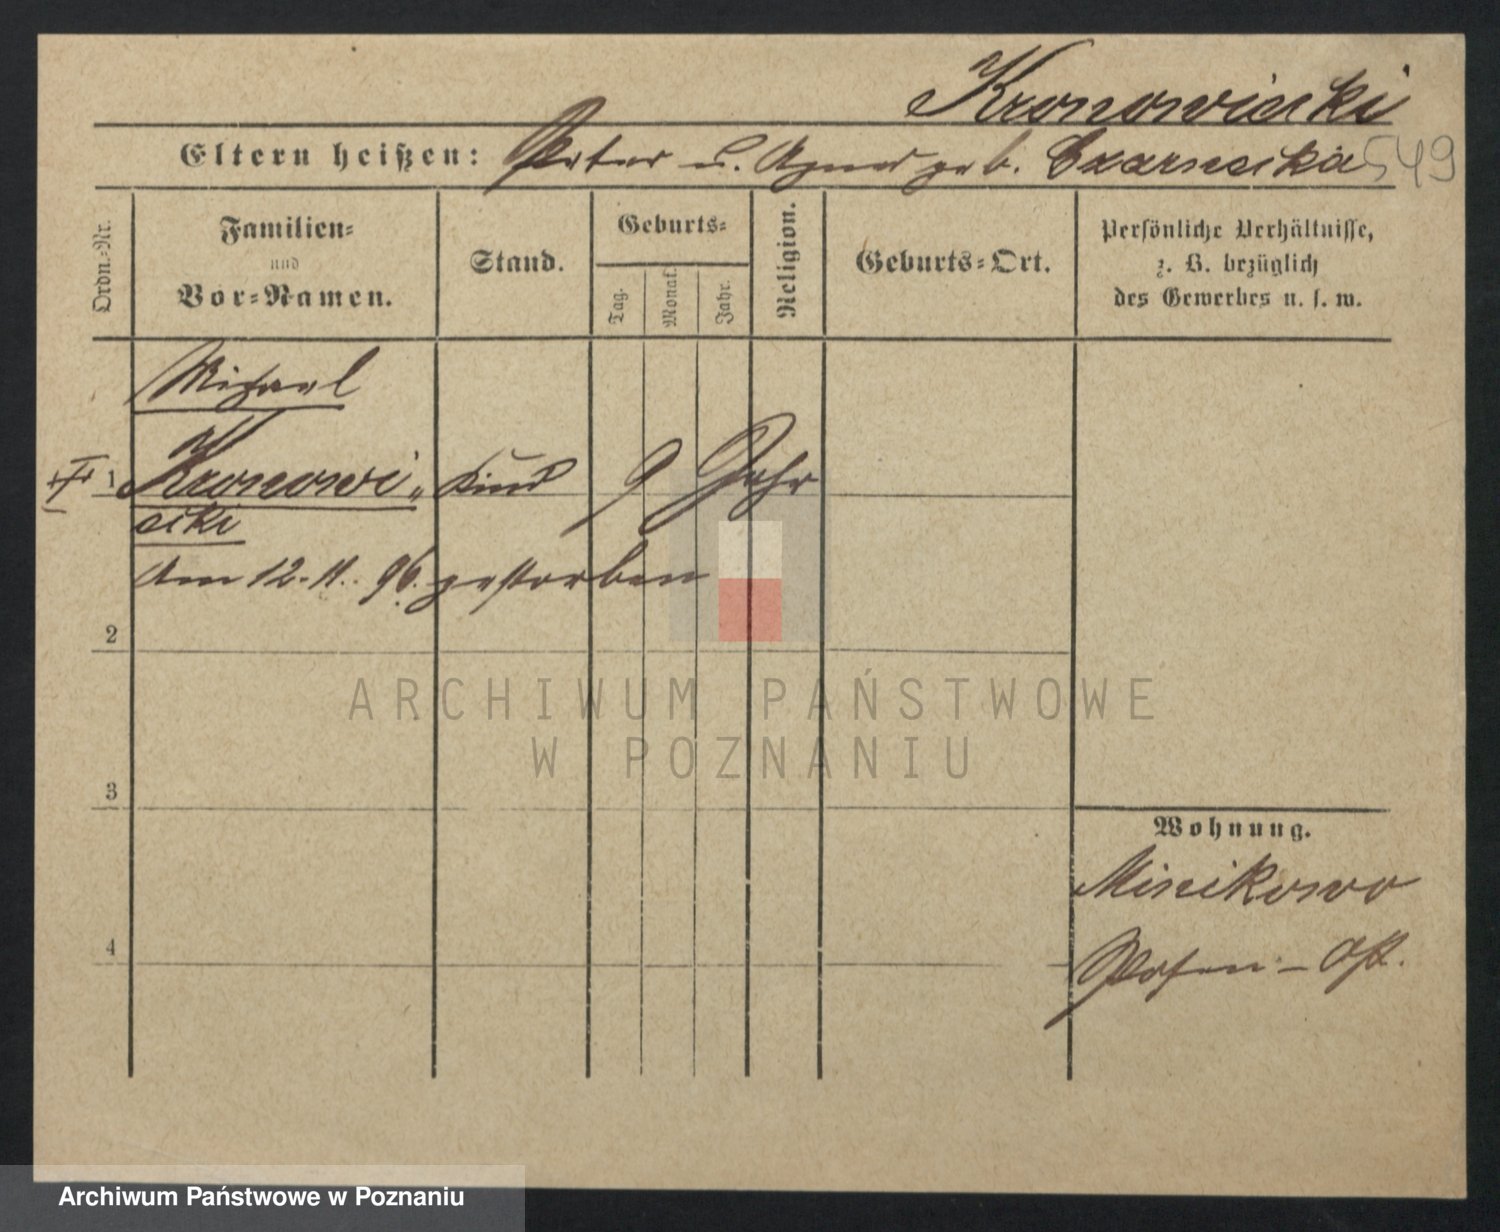 Kronowiecki
Eltern heißen: Peter u. Agnes geb. Czarnecka 549
Ordn.-Nr.
Familien-
und
Vor-Namen.
Stand.
Geburts-
Tag.
Monat.
Jahr.
Religion.
Geburts-Ort.
Persönliche Verhältnisse,
z. B. bezüglich
des Gewerbes u. s. w.
Michael
1 Kronowi- Kind 9 Jahr
ecki
Am 12. 11. 96. gestorben
2
ARCHIWUM PAŃSTWOWE
W POZNANIU
3
Wohnung.
Minikowo
4
Posen-Ost.
Archiwum Państwowe w Poznaniu